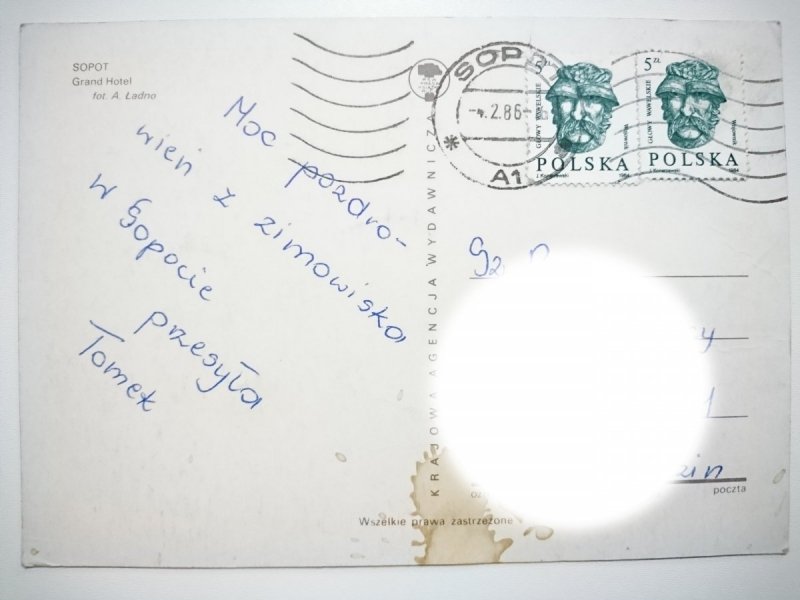 SOPOT
Grand Hotel
fot. A. Ładno
Moc pozdro-
wień z zimowiska
w Sopocie
przesyła
Tomek
KRAJOWA AGENCJA WYDAWNICZA
SOPOT
-4.2.86-
* A1
5 ZŁ
GŁOWY WAWELSKIE
POLSKA
1984
5 ZŁ
GŁOWY WAWELSKIE
POLSKA
1984
poczta
Wszelkie prawa zastrzeżone